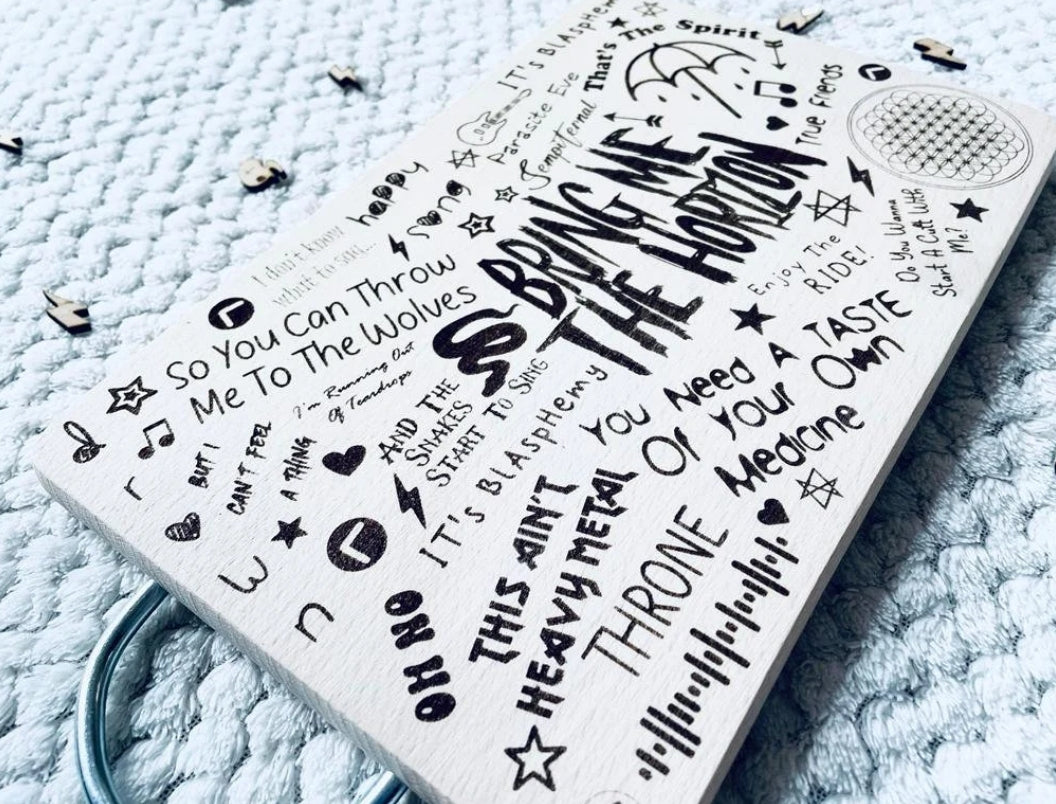 IT'S BlAsPHem
That's The Spirit
Parasite Eve
Tempifernal
True Friends
happy
song
BRING ME
THE HORIZON
I don't know
what to say...
So You Can Throw
Me To The Wolves
Enjoy The
RIDE!
Do You Wanna
Start A Cult With
Me?
I'm Running Out
Of Teardrops
AND THE
SNAKES
START TO SING
IT's BlAsPHemy
You Need A TASTE
Of Your Own
Medicine
d
r
w
n
BUT I
CAN'T FEEL
A THING
OH NO
THIS AIN'T
HEAVY METAL
THRONE